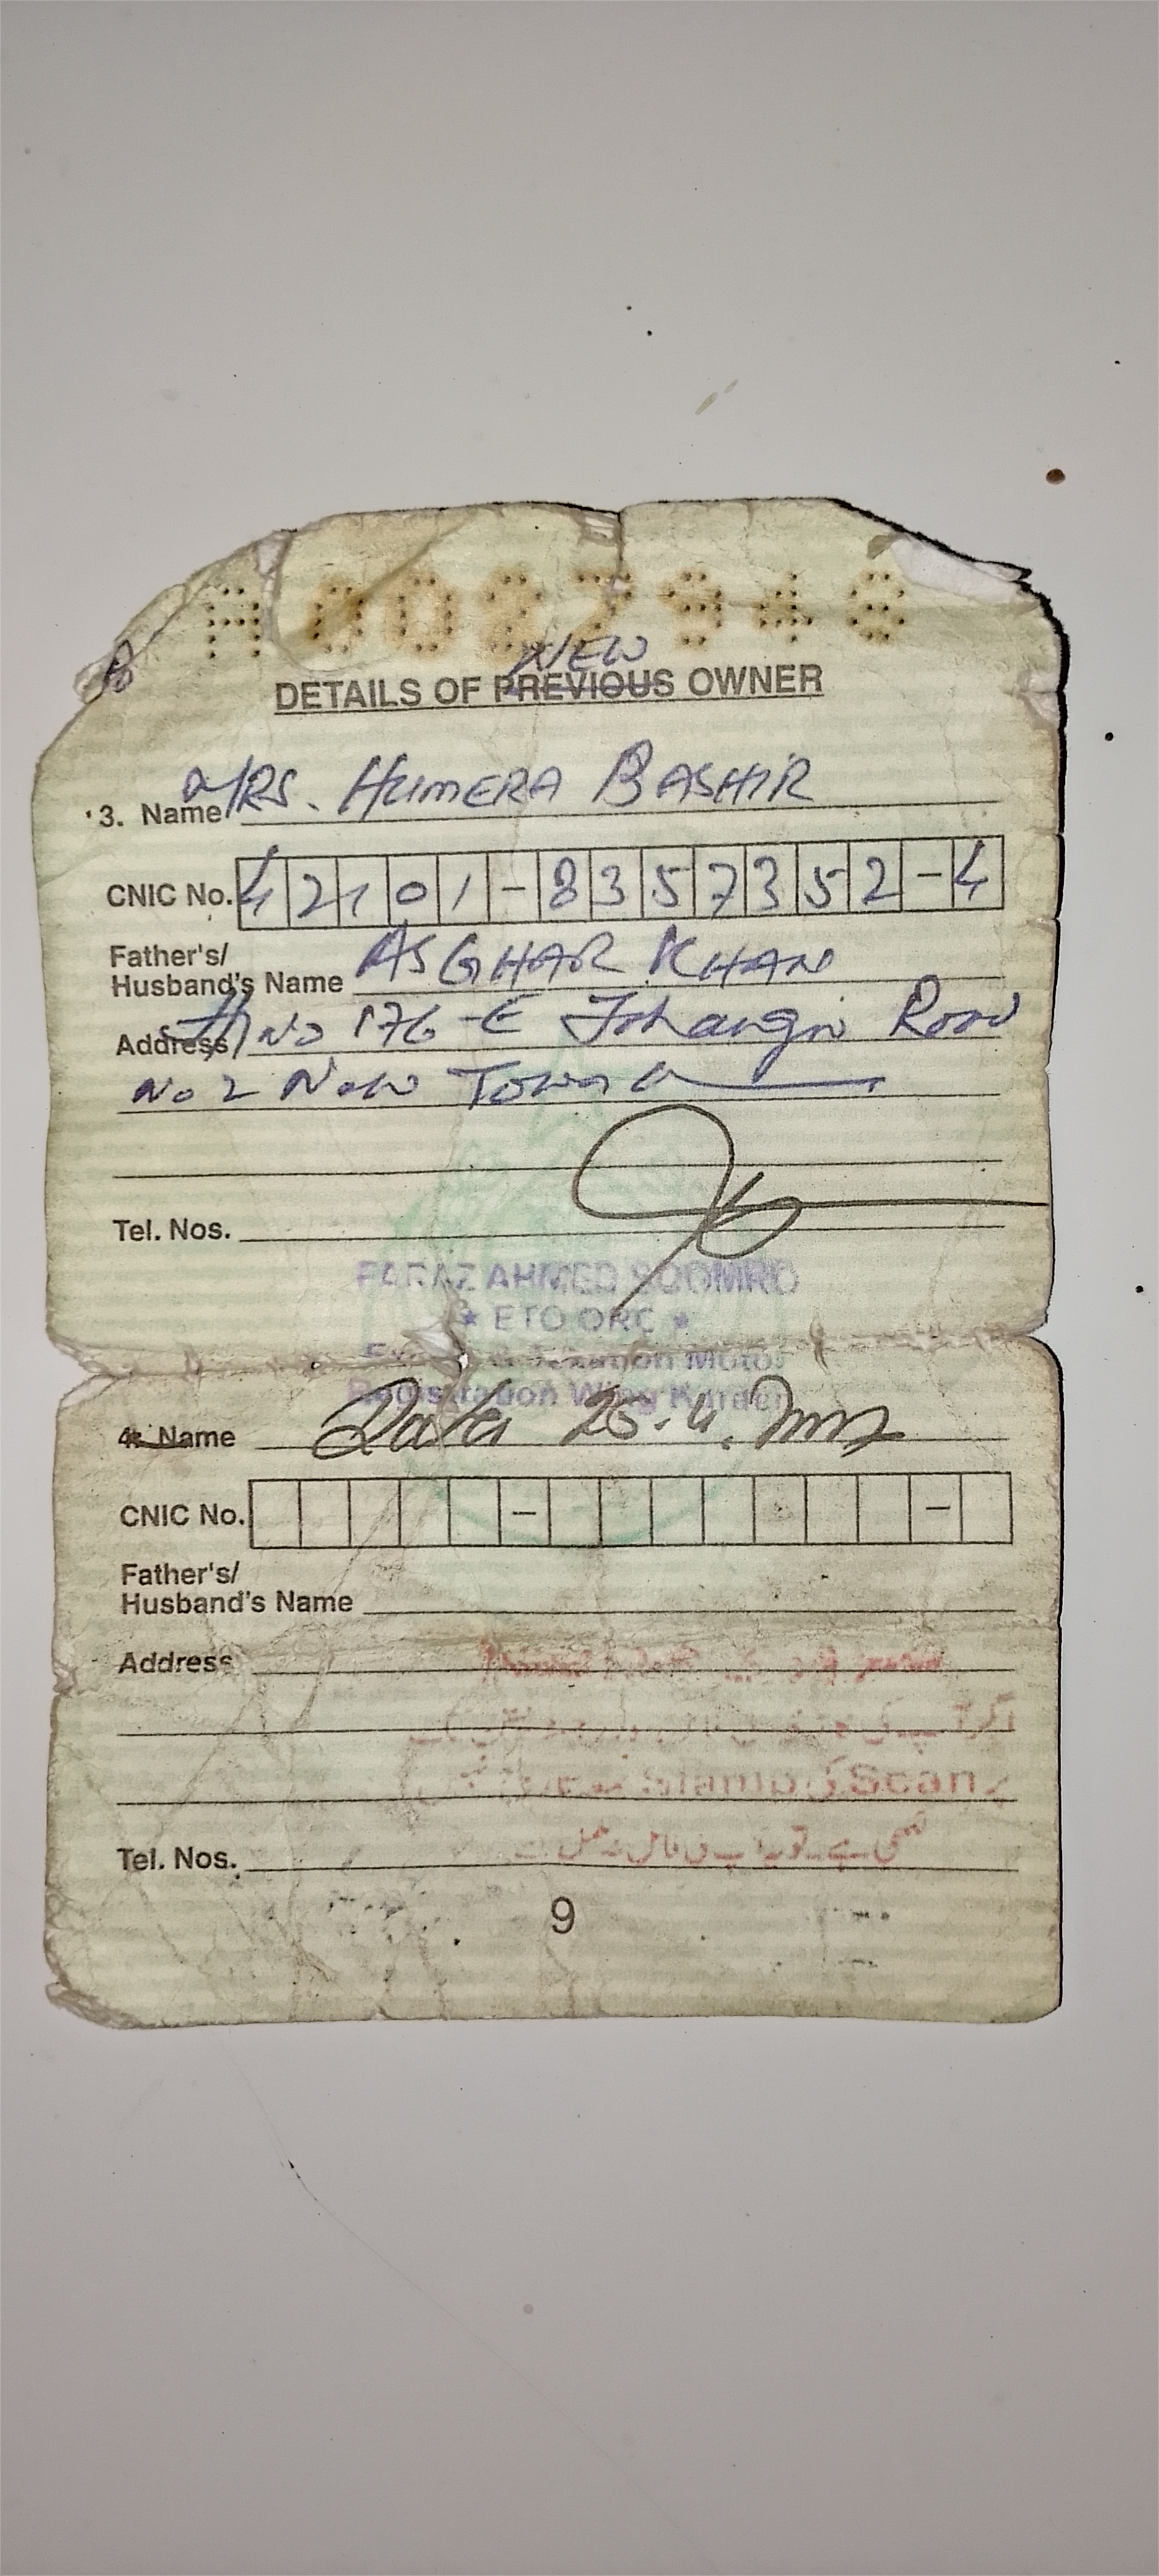 A0087946
NEW
DETAILS OF PREVIOUS OWNER
3. Name MRS. HUMERA BASHIR
CNIC No. 42101-8357352-4
Father's/
Husband's Name ASGHAR KHAN
Address H No 176-E Jehangir Road
No 2 New Town
Tel. Nos.
FARAZ AHMED SOOMRO
★ ETO ORC ★
Motor
Registration Wing Karachi
4. Name Date 25.4.
CNIC No. - -
Father's/
Husband's Name
Address
Scan
Tel. Nos.
9